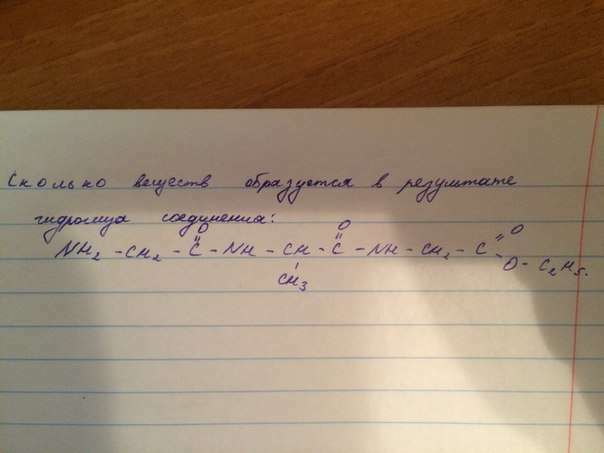 Сколько веществ образуется в результате
гидролиза соединения:
O O O
NH₂ - CH₂ - C - NH - CH - C - NH - CH₂ - C
CH₃ O - C₂H₅.